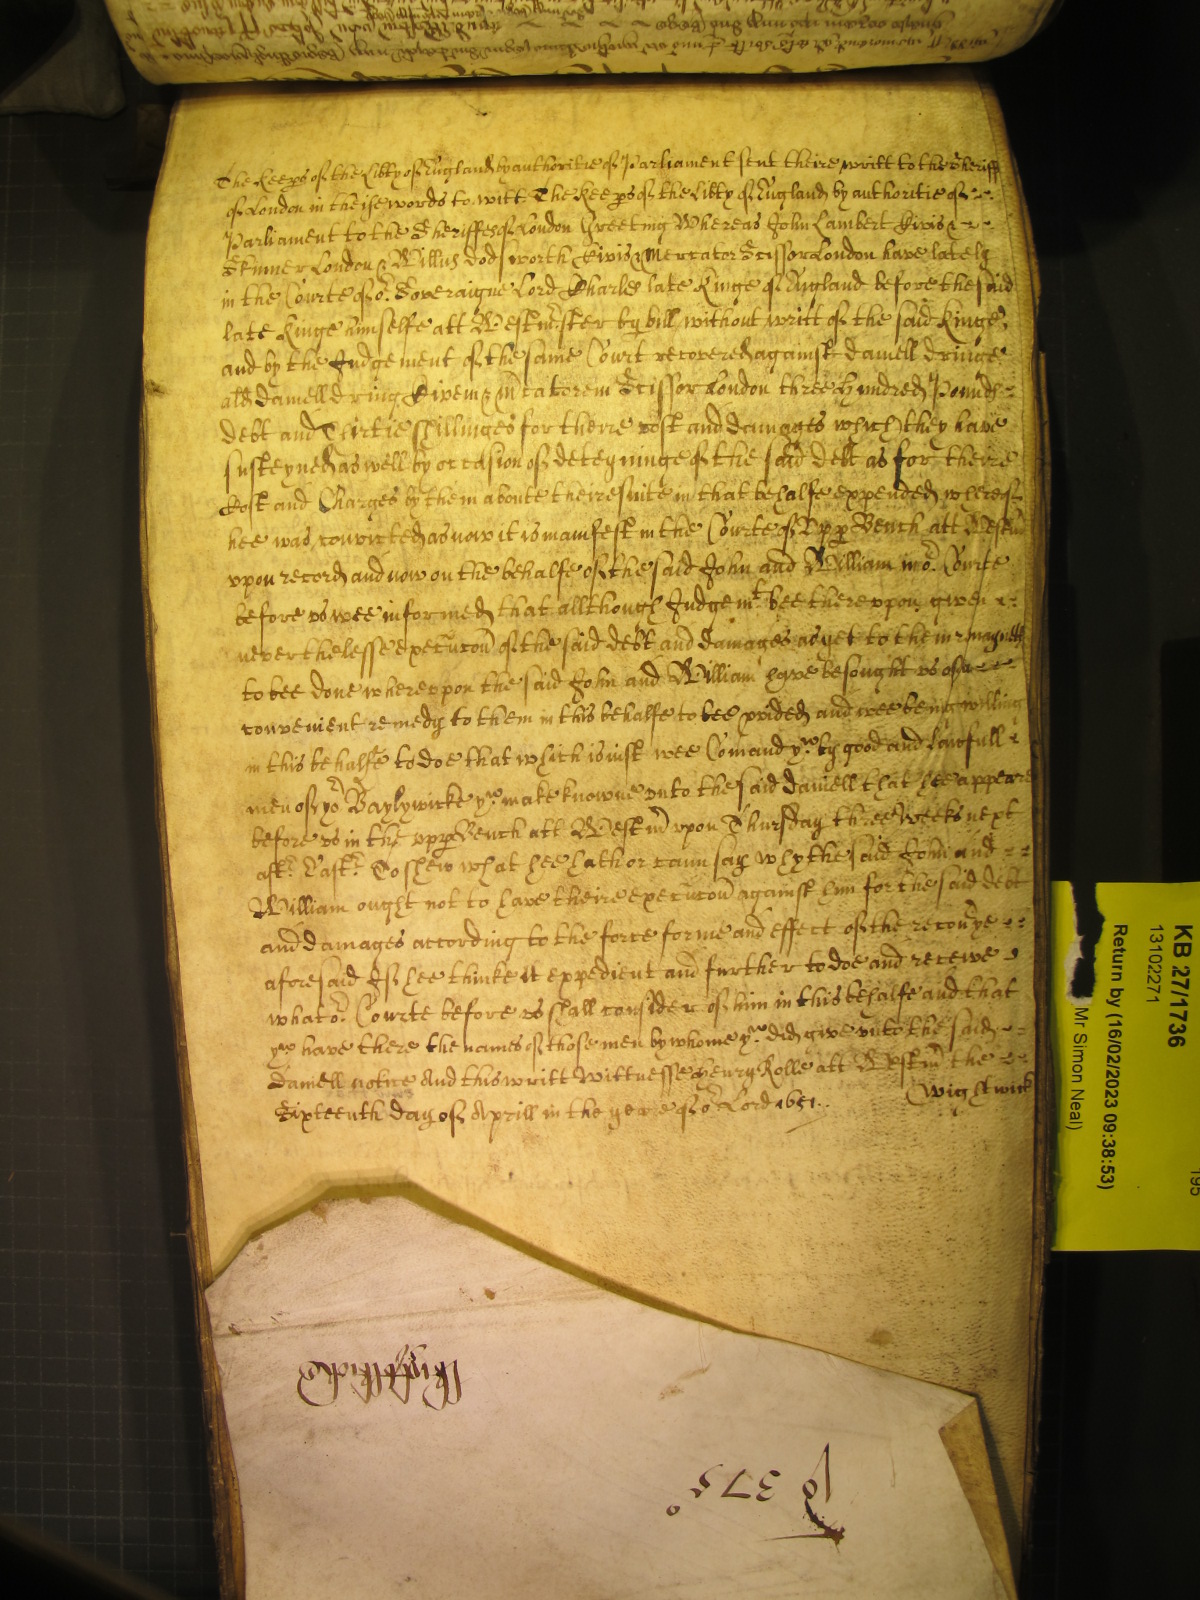 The Keeps of the Libty of England by authoritie of Parliament sent theire writt to the Sheriffs
of London in theise words to witt The Keeps of the Libty of England by authoritie of
Parliament to the Sheriffes of London Greeting Whereas John Lambert Civis &
Skinner London & Willus Dodsworth Civis & Mercator Scissor London have lately
in the Courte of or Soveraigne Lord Charles late Kinge of England before the said
late Kinge himselfe att Westmster by bill without writt of the said Kinge
and by the Judgement of the same Court recovered against Daniell Dringe
als Daniell Dring Civem & mcatorem Scissor London three hundred Pounds
debt and Thirtie shillinges for theire cost and damages which they have
susteyned as well by occasion of deteyninge of the said debt as for theire
Cost and Charges by them aboute theire suite in that behalfe expended whereof
hee was convicted as now it is manifest in the Courte of Upp Bench att Westm
upon record and now on the behalfe of the said John and William in or Courte
before us wee informed that allthough Judgemt bee thereupon given
neverthelesse execucon of the said debt and damages as yet to them remayneth
to bee done whereupon the said John and William have besought us of a
convenient remedy to them in this behalfe to bee pvided and wee being willing
in this behalfe to doe that which is iust wee Comand you by good and lawfull
men of yor Baylywicke you make knowne unto the said Daniell that hee appeare
before us in the upp Bench att Westm upon Thursday three Weeks next
aftr Eastr To shew what hee hath or cann say why the said John and
William ought not to have theire execucon against him for the said debt
and damages according to the force forme and effect of the recovye
aforesaid If hee thinke it expedient and further to doe and receive
what or Courte before us shall consider of him in this behalfe and that
you have there the names of those men by whome you did give unto the said
Daniell notice And this writt Wittnesse Henry Rolle att Westm the
Sixteenth day of Aprill in the yeere of or Lord 1651.
Wightwick
Wightwick
Ro 375
KB 27/1736
13102271
Return by (16/02/2023 09:38:53)
Mr Simon Neal)
195